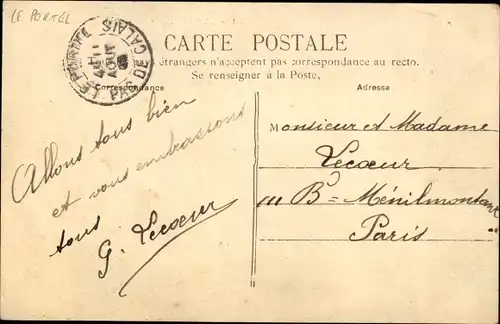 LE PORTEL
LE PORTEL
11
AOUT
PAS DE CALAIS
CARTE POSTALE
étrangers n'acceptent pas correspondance au recto.
Se renseigner à la Poste,
Correspondance
Adresse
Allons tous bien
et vous embrassons
tous
G. Lecoeur
Monsieur et Madame
Lecoeur
111 Bd Ménilmontant
Paris